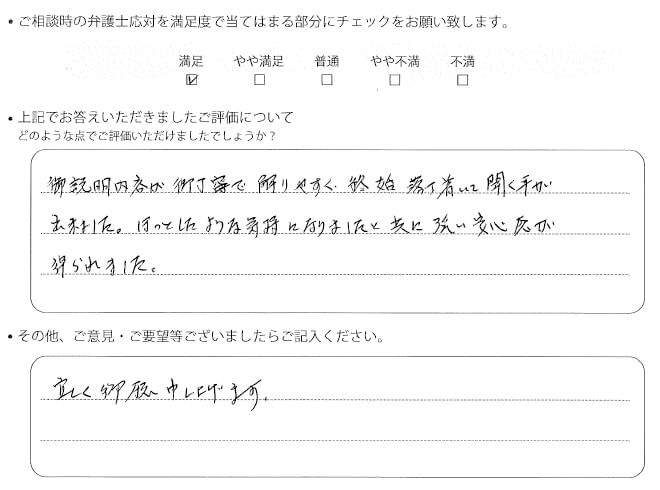 • ご相談時の弁護士応対を満足度で当てはまる部分にチェックをお願い致します。
満足 やや満足 普通 やや不満 不満
☑ □ □ □ □
• 上記でお答えいただきましたご評価について
どのような点でご評価いただけましたでしょうか？
御説明内容が御丁寧で解りやすく終始落ち着いて聞く事が
出来ました。ほっとしたような気持になりましたと共に強い安心感が
得られました。
• その他、ご意見・ご要望等ございましたらご記入ください。
宜しく御願い申し上げます。